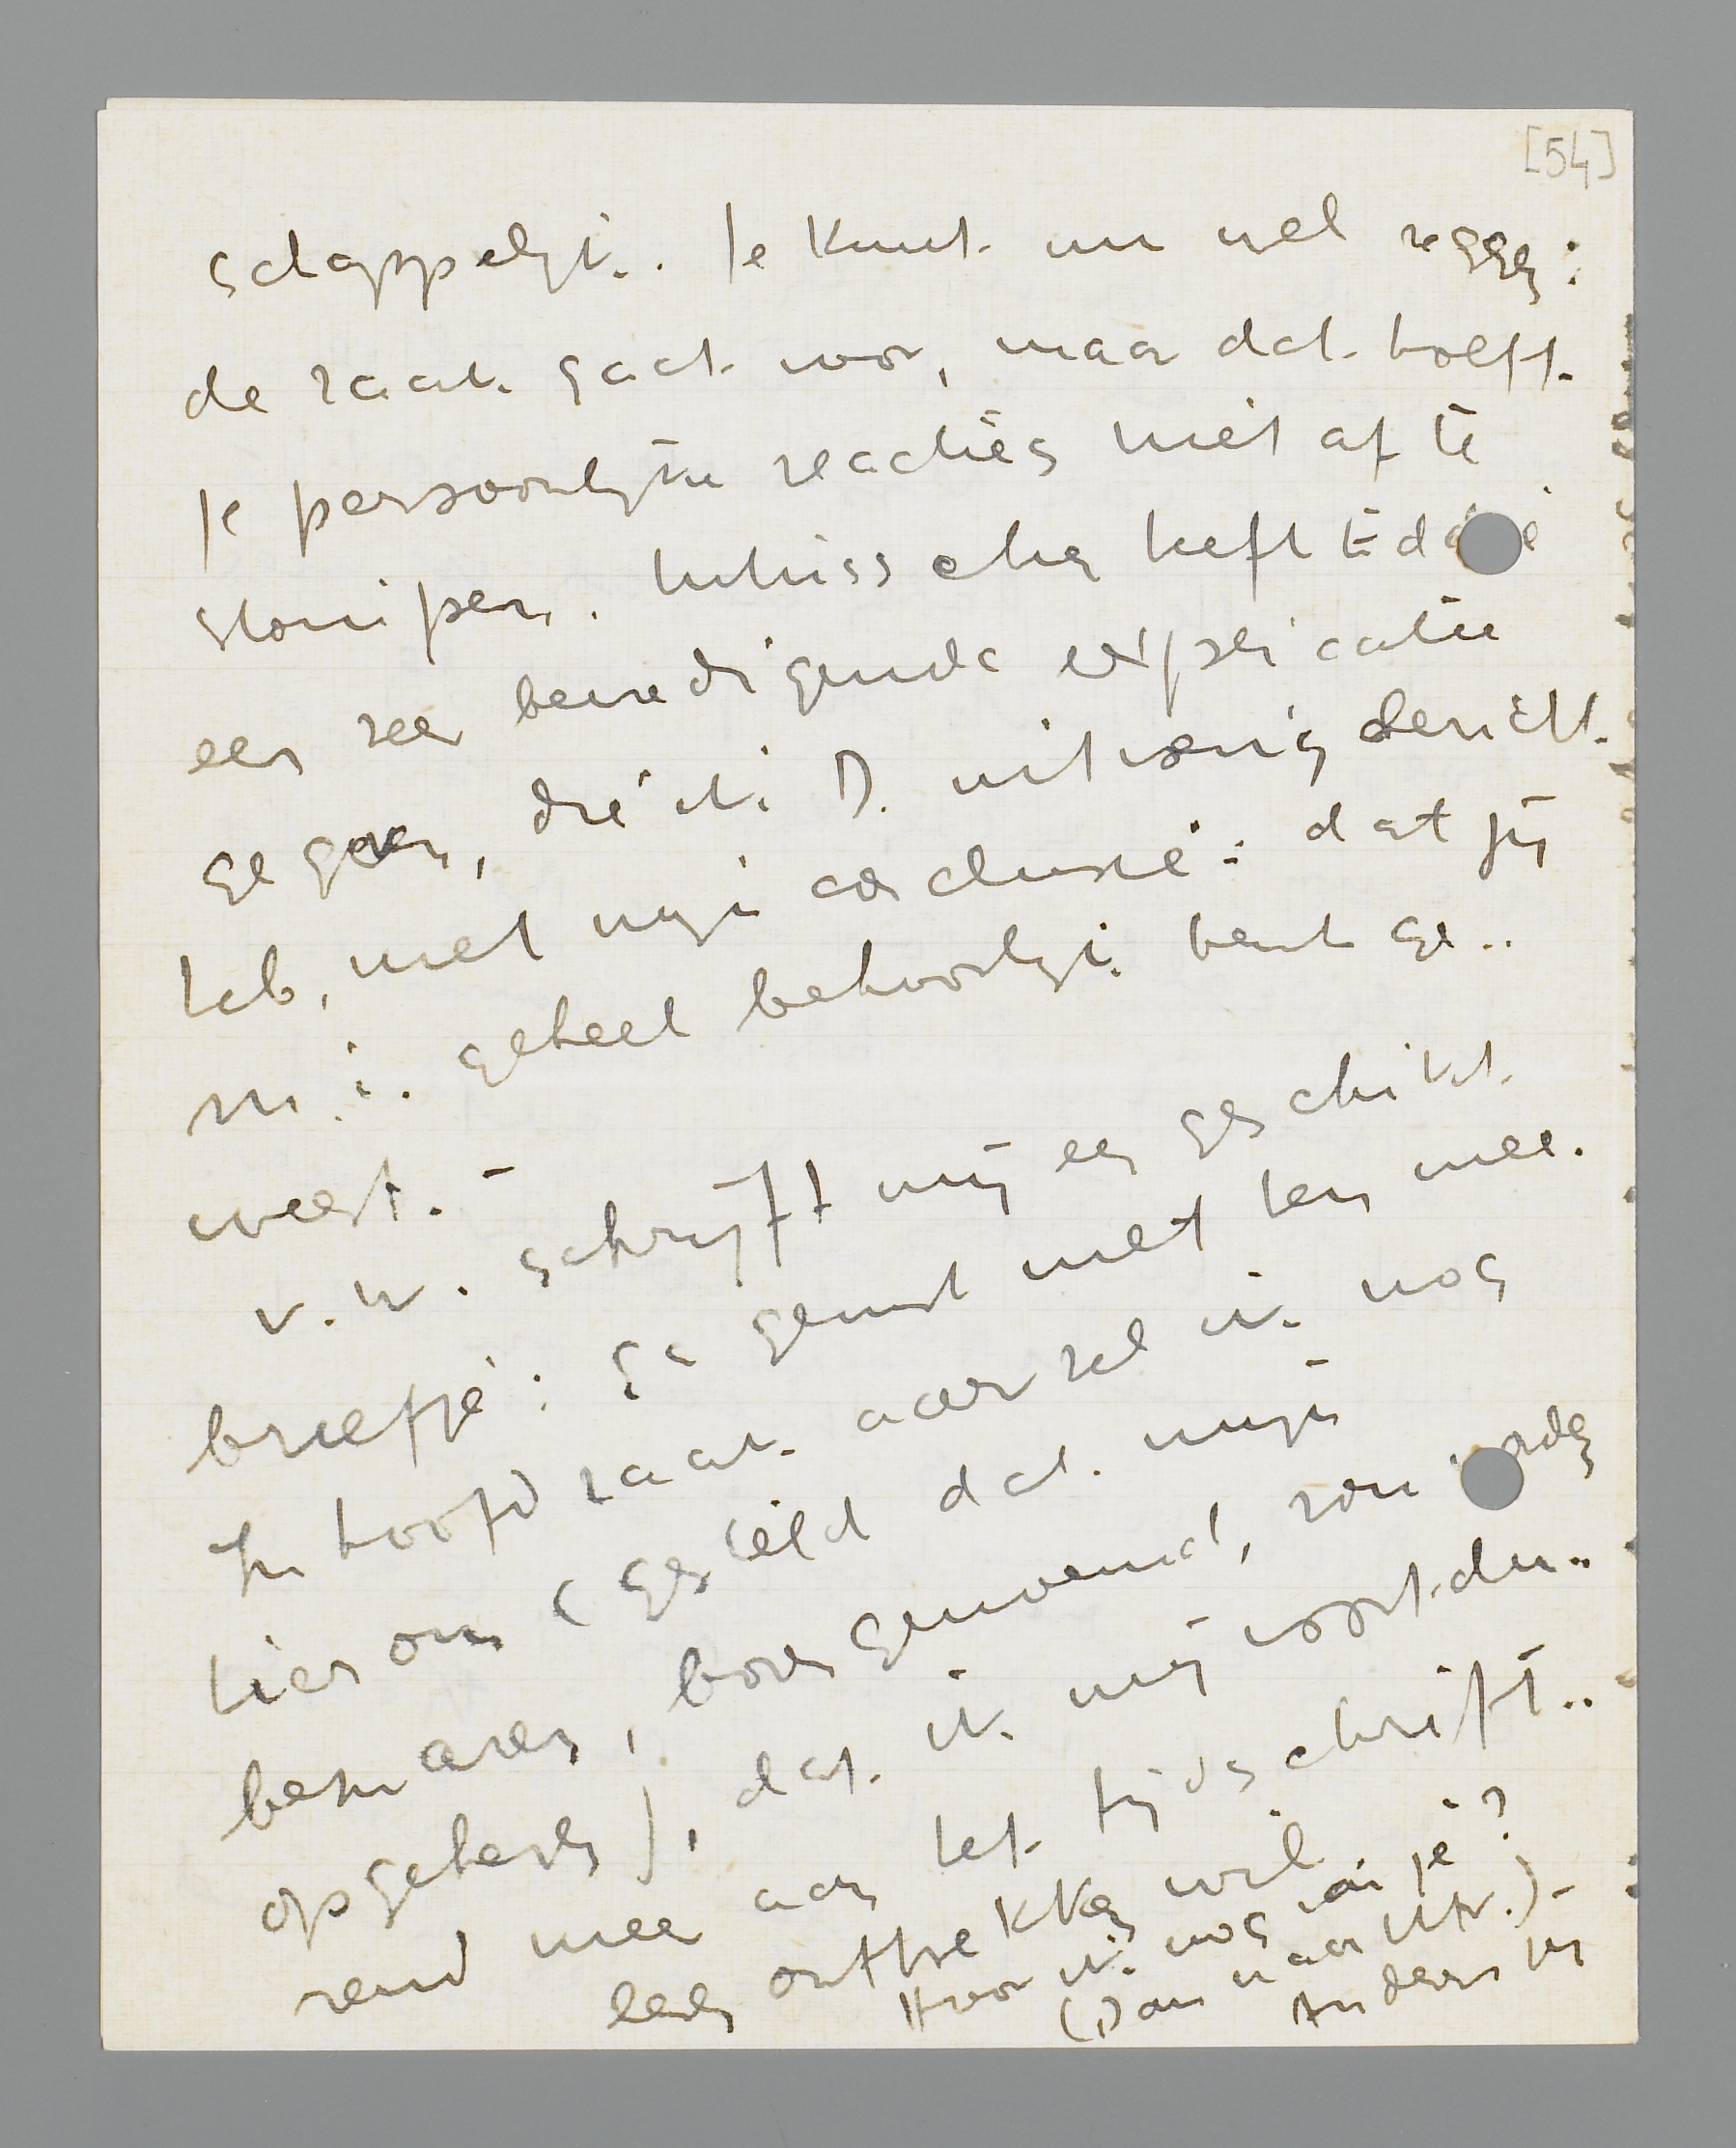 [54]
schappelijk. Je kunt nu wel zeggen:
de zaak gaat voor, maar dat hoeft
je persoonlijke reacties niet af te
stompen. Intusschen heeft Eddie
een zeer bevredigende explicatie
gegeven, die ik D. uitvoerig bericht
heb, met mijn conclusie: dat jij
m.i. geheel behoorlijk bent ge-
weest. -
v. W. schrijft mij een geschikt
briefje: Ga gerust met hen mee.
In hoofdzaak aarzel ik nog
hierom (gesteld dat mijn
bezwaren, bovengenoemd, zouden
opgeheven), dat ik mij voortdu-
rend mee aan het tijdschrift-
leven onttrekken wil.
Hoor ik nog van je?
(Dan naar Utr.) -
Anders in